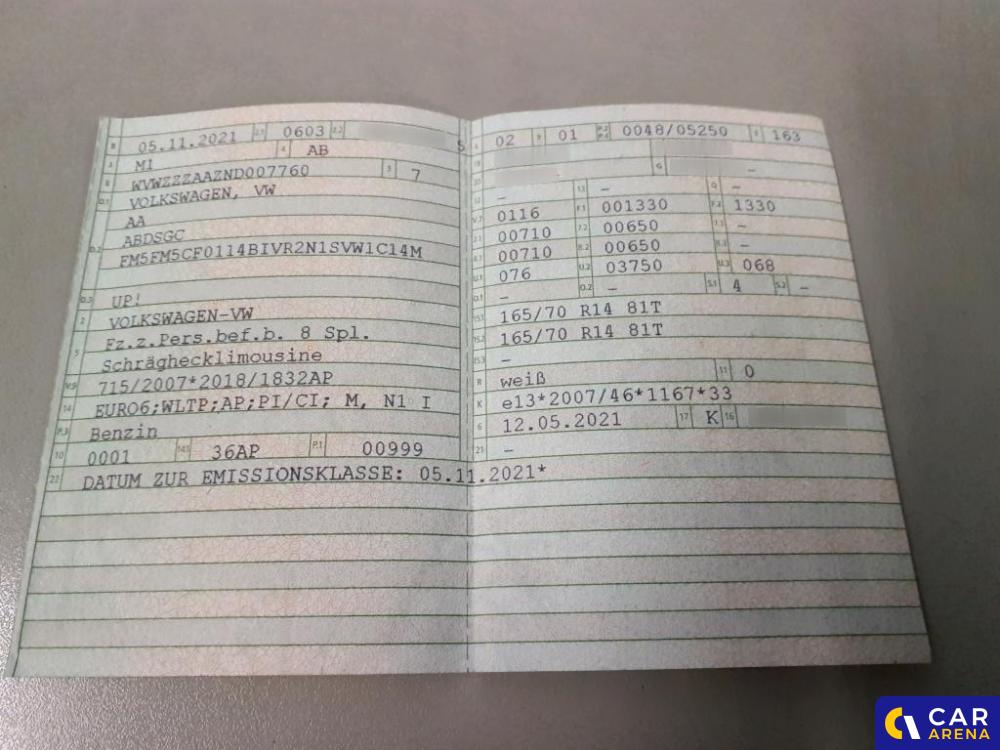 B 05.11.2021 2.1 0603 2.2
J M1 4 AB
E WVWZZZAAZND007760 3 7
D.1 VOLKSWAGEN, VW
AA
D.2 ABDSGC
FM5FM5CF0114BIVR2N1SVW1C14M
D.3 UP!
2 VOLKSWAGEN-VW
5 Fz.z.Pers.bef.b. 8 Spl.
Schräghecklimousine
V.9 715/2007*2018/1832AP
14 EURO6;WLTP;AP;PI/CI; M, N1 I
P.3 Benzin
10 0001 14.1 36AP P.1 00999
22 DATUM ZUR EMISSIONSKLASSE: 05.11.2021*
02 9 01 P.2 P.4 0048/05250 T 163
18
20 G –
12 – 13 – Q –
V.7 0116 F.1 001330 F.2 1330
7.1 00710 7.2 00650 7.3 –
8.1 00710 8.2 00650 8.3 –
U.1 076 U.2 03750 U.3 068
O.1 – O.2 – S.1 4 S.2 –
15.1 165/70 R14 81T
15.2 165/70 R14 81T
15.3 –
R weiß 11 0
K e13*2007/46*1167*33
6 12.05.2021 17 K 16
21 –
CAR
ARENA